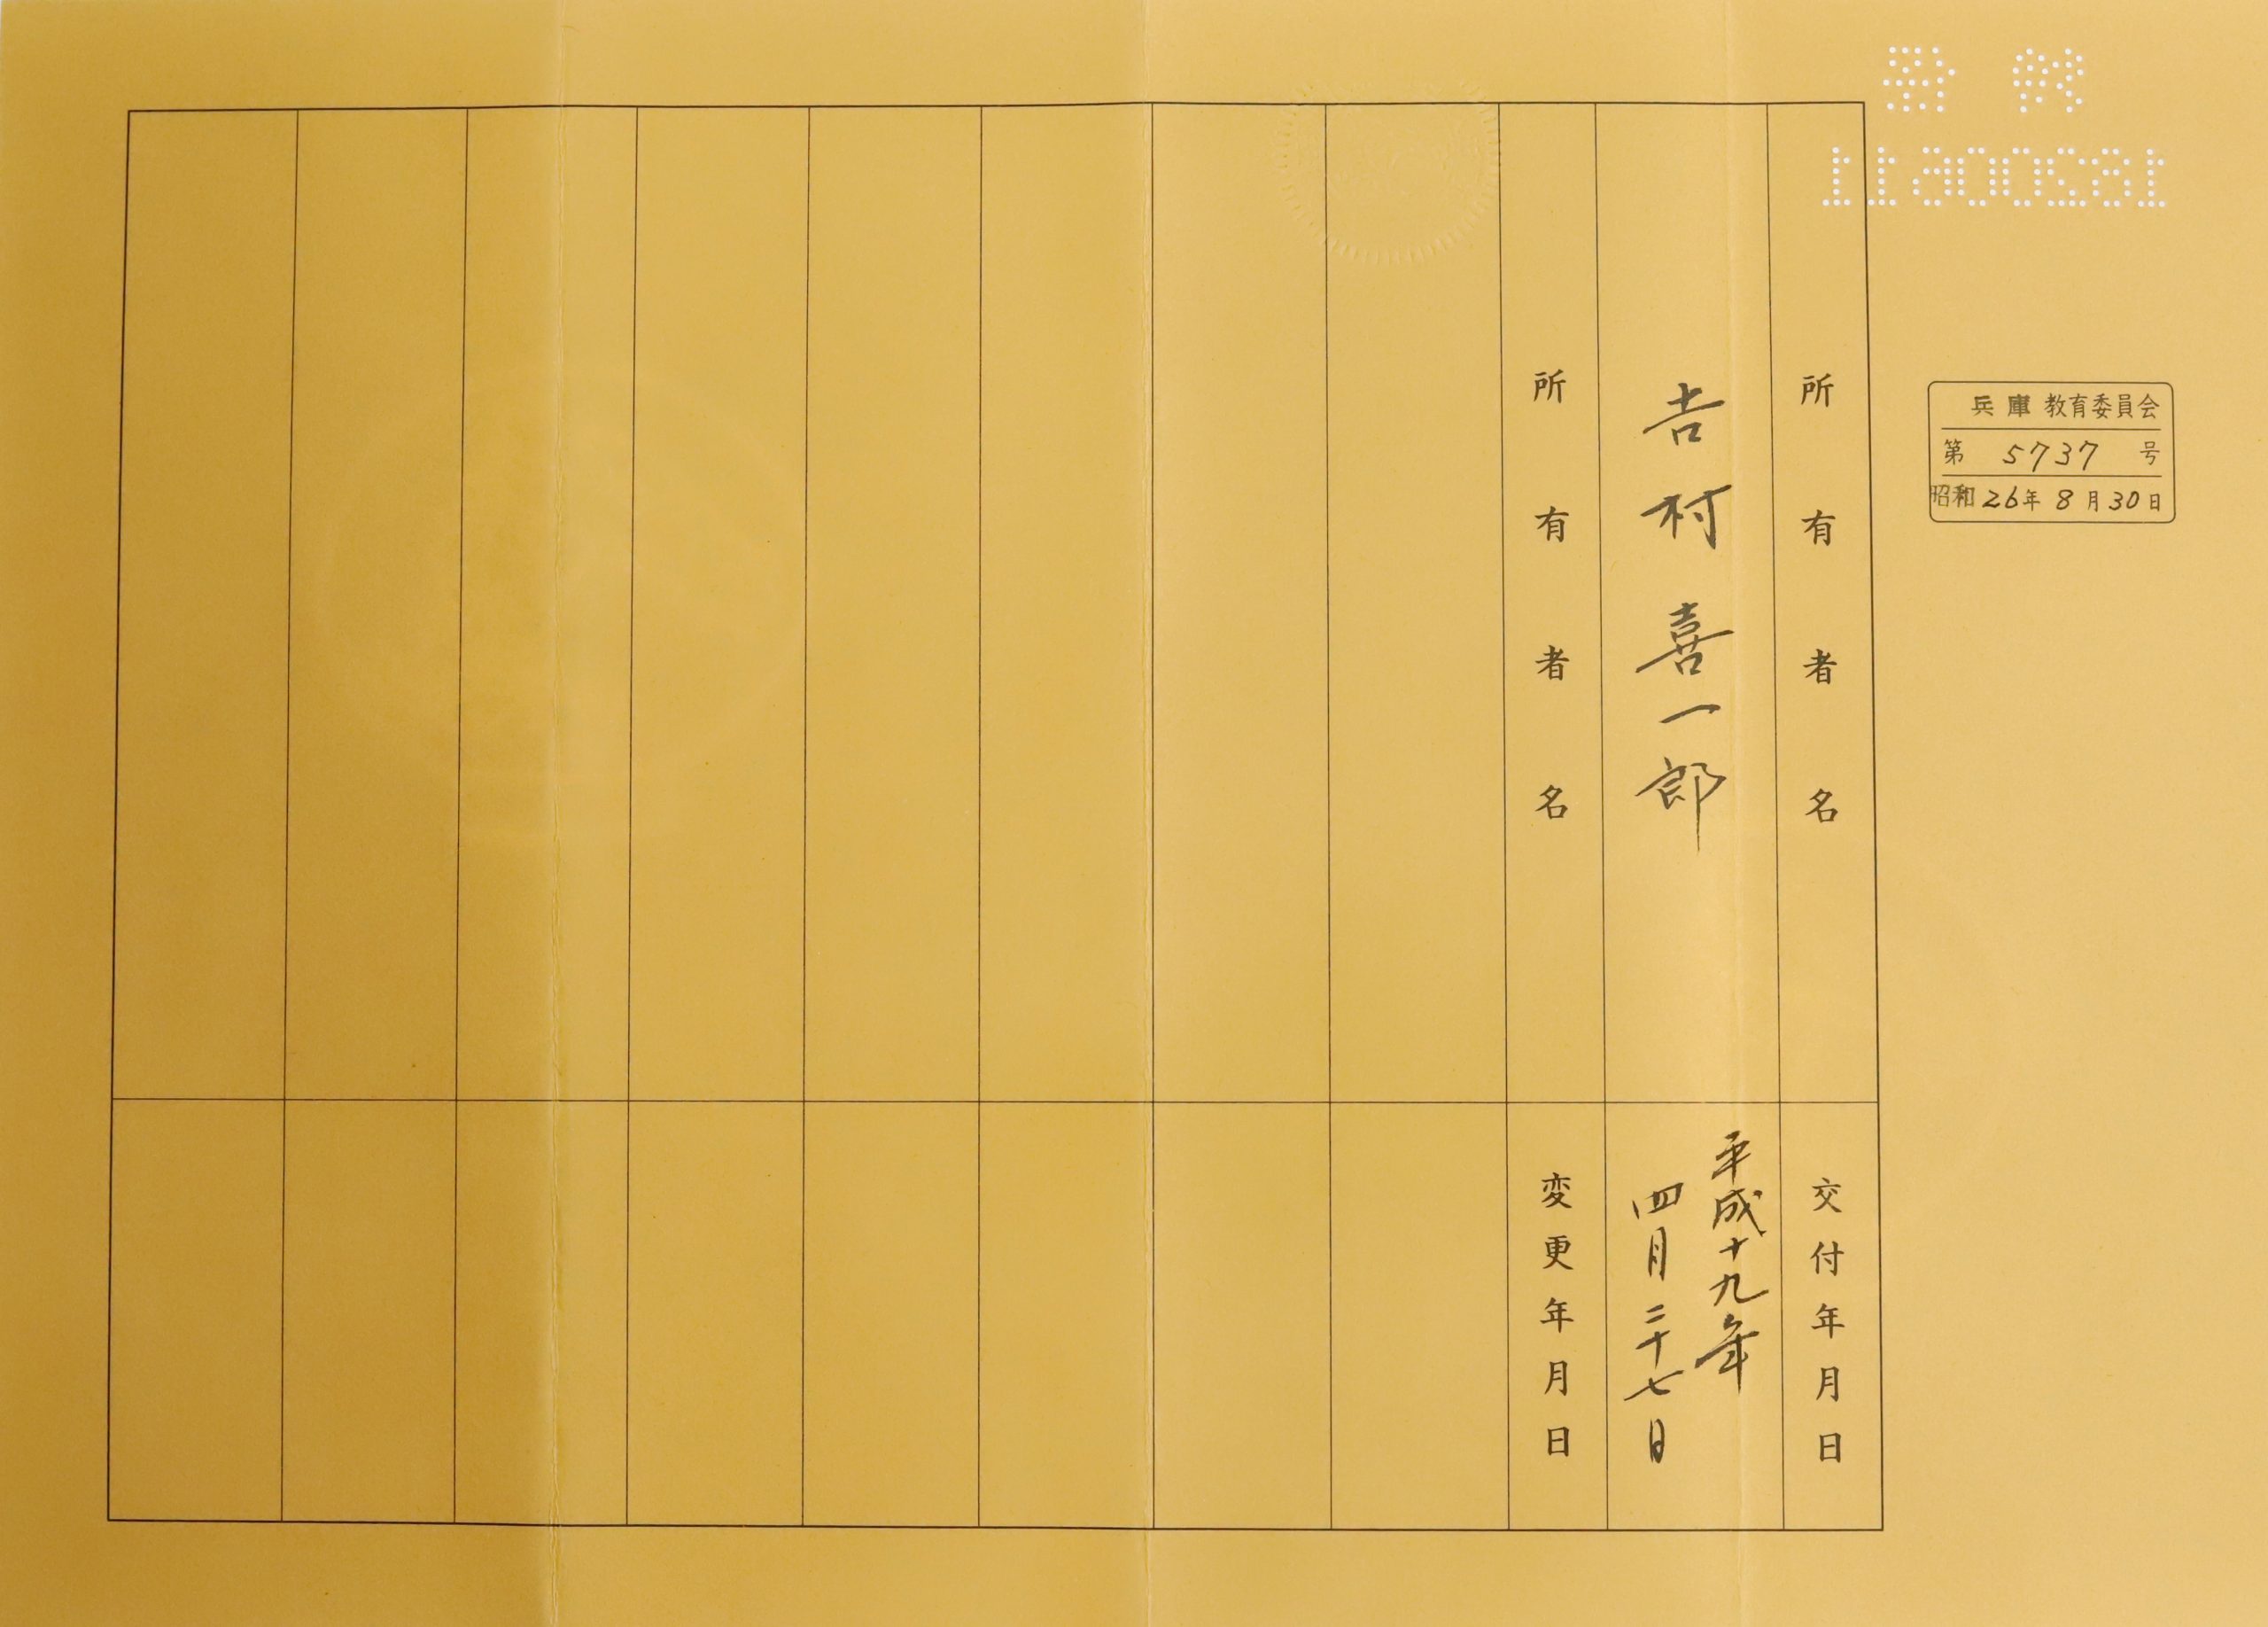 兵庫教育委員会
第 5737 号
昭和26年8月30日
所有者名
交付年月日
吉村喜一郎
平成十九年
四月二十七日
所有者名
変更年月日